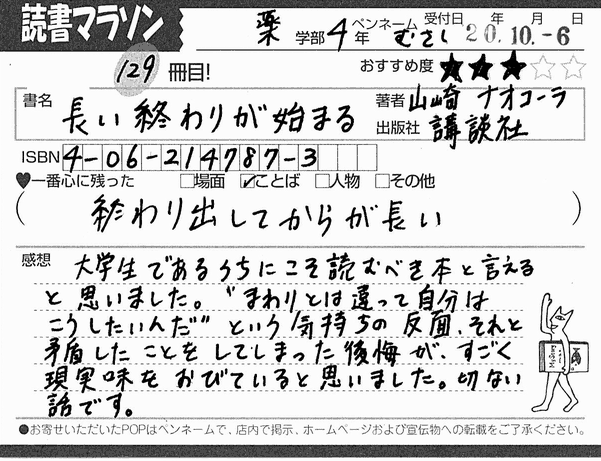 読書マラソン
薬 学部 4 年 ペンネーム むさし 受付日 年 月 日 20.10.-6
129 冊目! おすすめ度 ★★★☆☆
書名 長い終わりが始まる 著者 山崎 ナオコーラ
出版社 講談社
ISBN 4-06-214787-3
♥一番心に残った □場面 ☑ことば □人物 □その他
( 終わり出してからが長い )
感想 大学生であるうちにこそ読むべき本と言える
と思いました。“まわりとは違って自分は
こうしたいんだ”という気持ちの反面、それと
矛盾したことをしてしまった後悔が、すごく
現実味をおびていると思いました。切ない
話です。
●お寄せいただいたPOPはペンネームで、店内で掲示、ホームページおよび宣伝物への転載をご了承ください。